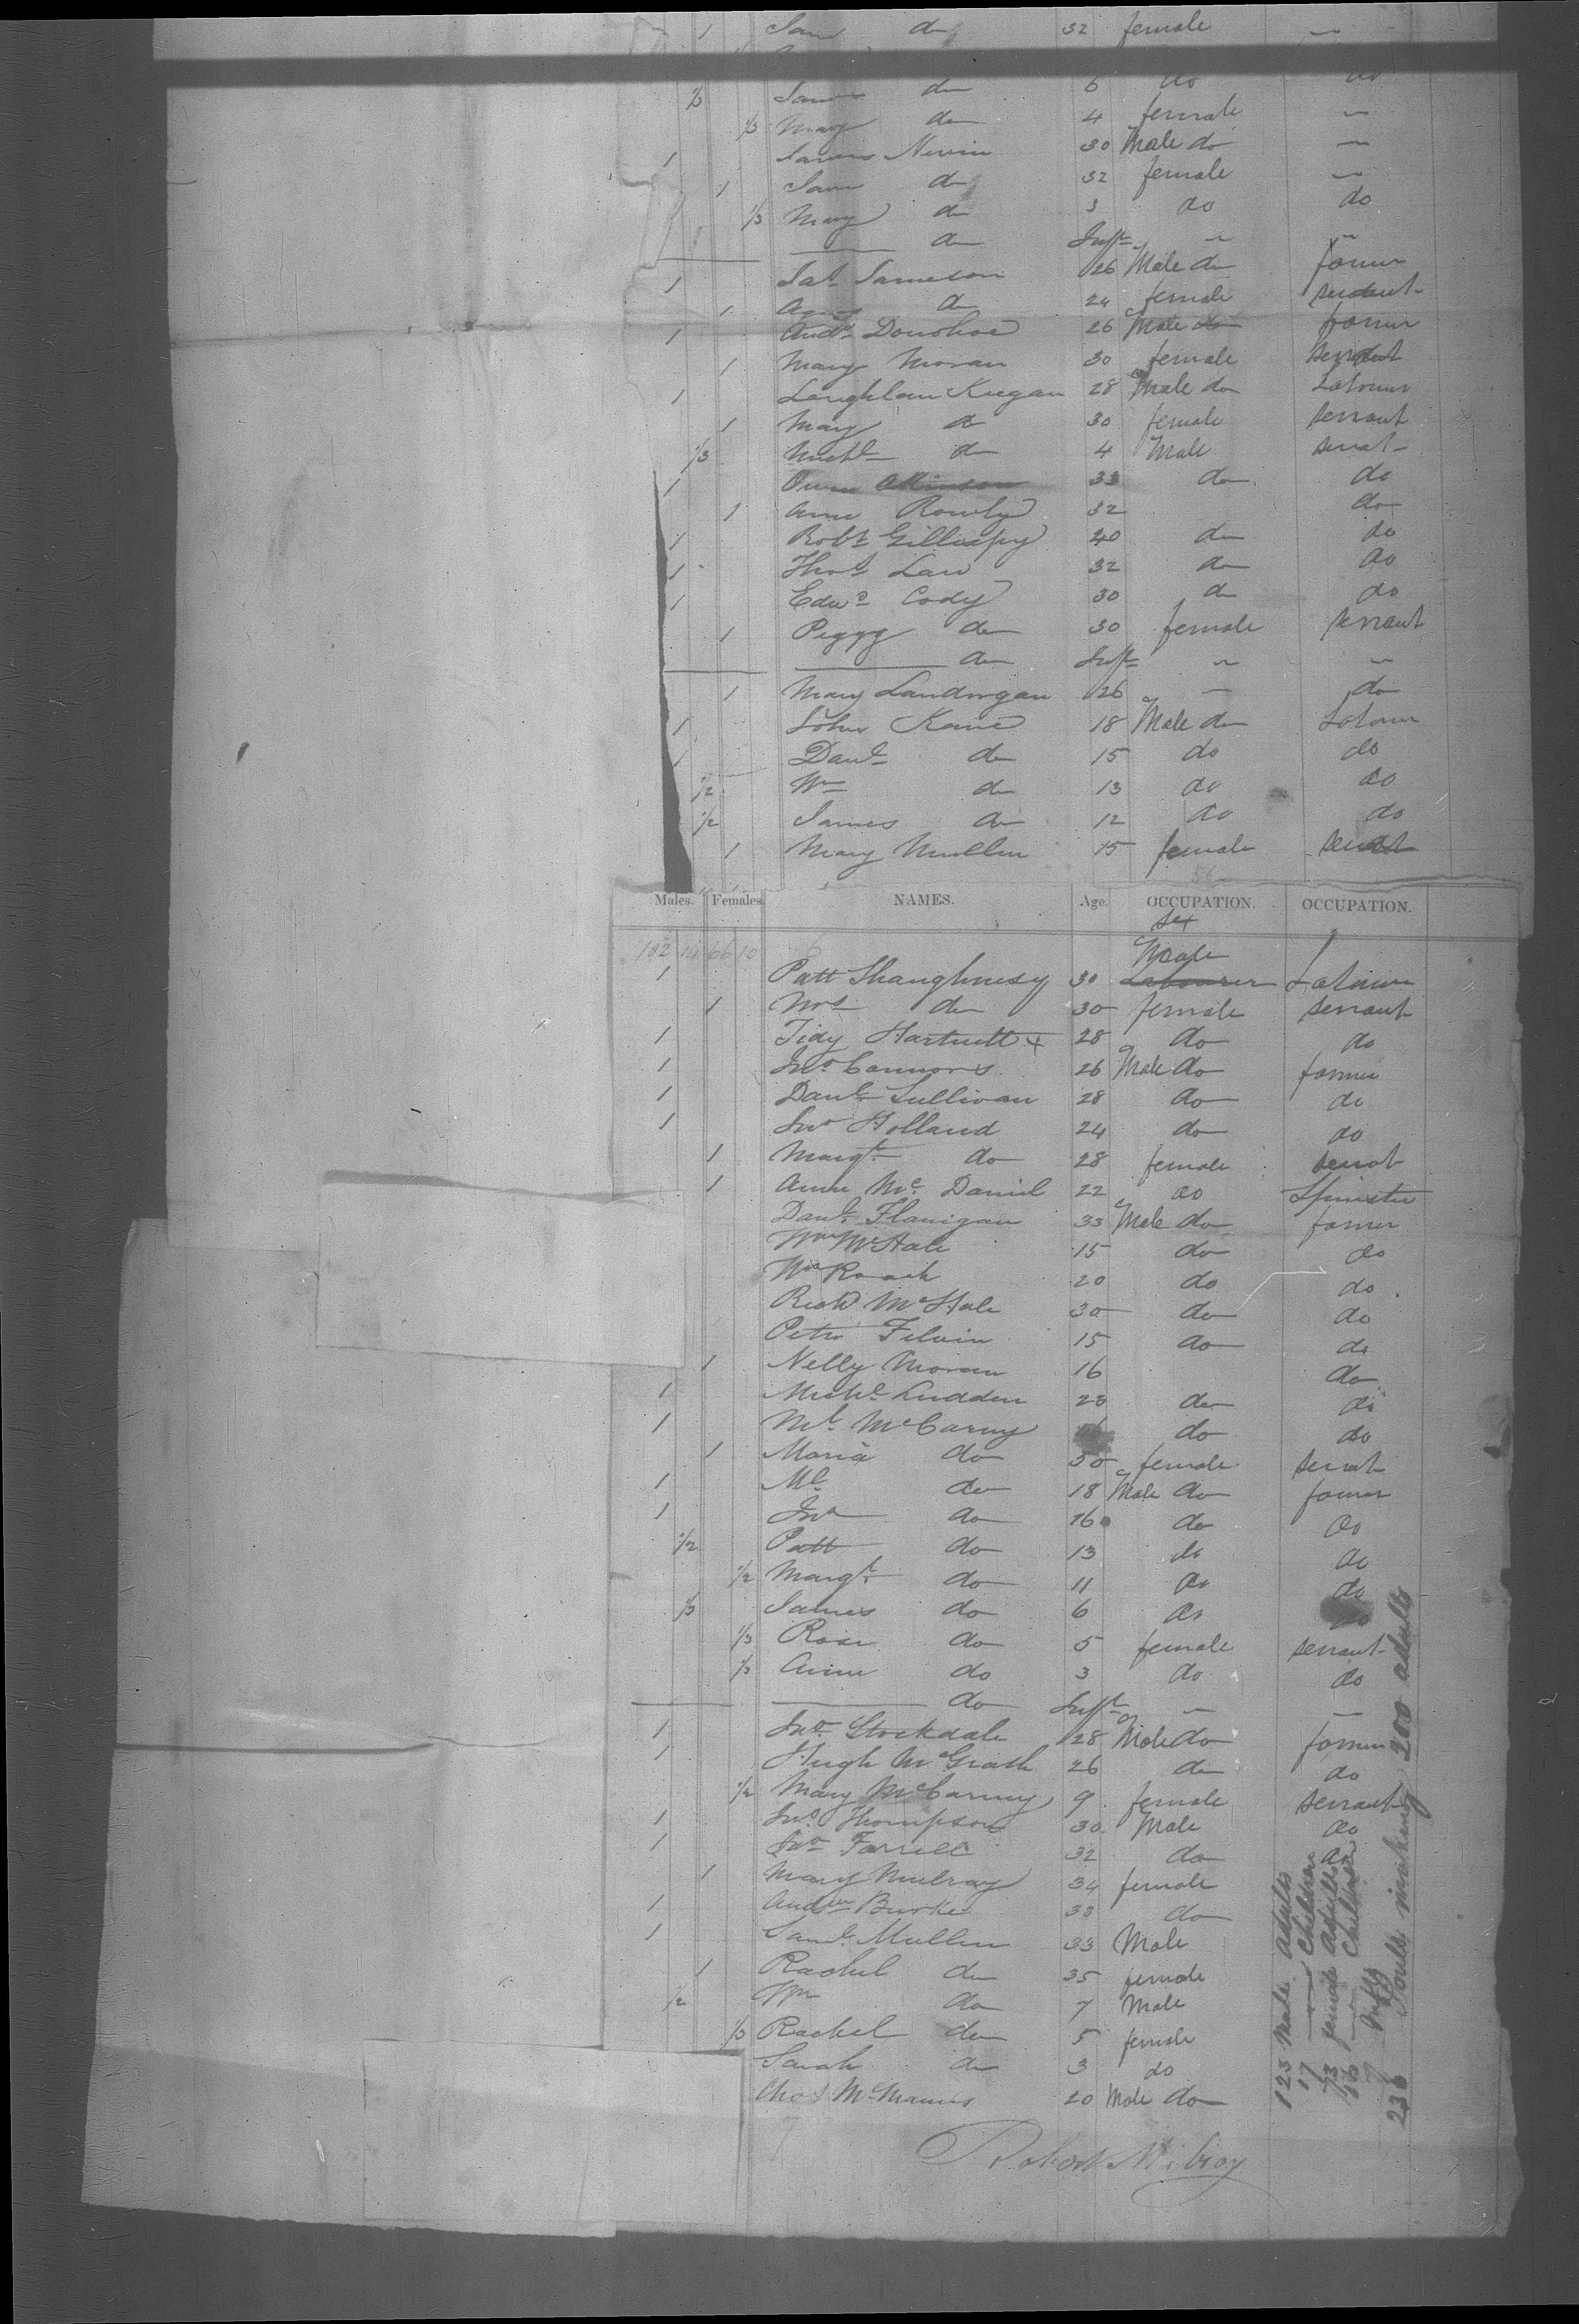 1 Jane do 32 female "
1/3 James do 6 do do
1/3 Mary do 4 female "
1 James Nevin 30 Male do "
1 Jane do 32 female "
1/3 Mary do 3 do do
do Inft " "
1 Jas Jameson 26 Male do farmer
1 Agnes do 24 female servant
1 Andw Donohoe 26 Male do farmer
1 Mary Moran 30 female servant
1 Laughlan Keegan 28 Male do Labourer
1 Mary do 30 female servant
1/3 Michl do 4 Male servat
1 Owen Atkinson 33 do do
1 Anne Rowly 32 do
1 Robt Gillespy 40 do do
1 Thos Law 32 do do
1 Edwd Cody 30 do do
1 Peggy do 30 female servant
do Inft " "
1 Mary Landrigan 26 " do
1 John Kane 18 Male do Labourer
1 Danl do 15 do do
1/2 Wm do 13 do do
1/2 James do 12 do do
1 Mary Mullen 15 female servant
56
Males. Females. NAMES. Age. OCCUPATION. OCCUPATION.
Sex
102 14 66 10
Male
1 Patt Shaughnesy 30 Labourer Labourer
1 Mrs do 30 female servant
1 Tidy Hartnett + 28 do do
1 Jno Connors 26 Male do farmer
1 Danl Sullivan 28 do do
1 Jno Holland 24 do do
1 Margt do 28 female servat
1 Anne Mc Daniel 22 do Spinster
Danl Flanigan 33 Male do farmer
Wm McHale 15 do do
Wm Roach 20 do do
Richd McHale 30 do do
Peter Filvin 15 do do
1 Nelly Moran 16 do
1 Michl Ludden 28 do do
1 Ml McCarny do do
1 Maria do 50 female servat
1 Ml do 18 Male do farmer
1 Jno do 16 do do
1/2 Patt do 13 do do
1/2 Margt do 11 do do
1/3 James do 6 do do
1/3 Rose do 5 female servant
1/3 Anne do 3 do do
do Inft " "
1 Jno Stockdale 28 Male do farmer
1 Hugh McGrath 26 do do
1/2 Mary McCarny 9 female servant
1 Jno Thompson 30 Male do
1 Jno Farrell 32 do do
1 Mary Mulray 34 female
1 Andw Burke 38 do
1 Saml Mullen 33 Male
1 Rachel do 35 female
1/2 Wm do 7 Male
1/3 Rachel do 5 female
Sarah do 3 do
Chas McManus 20 Male do
Robert Milroy
123 Male adults
17 do Children
73 female adults
16 do Children
7 Infts
236 Souls making 200 adults